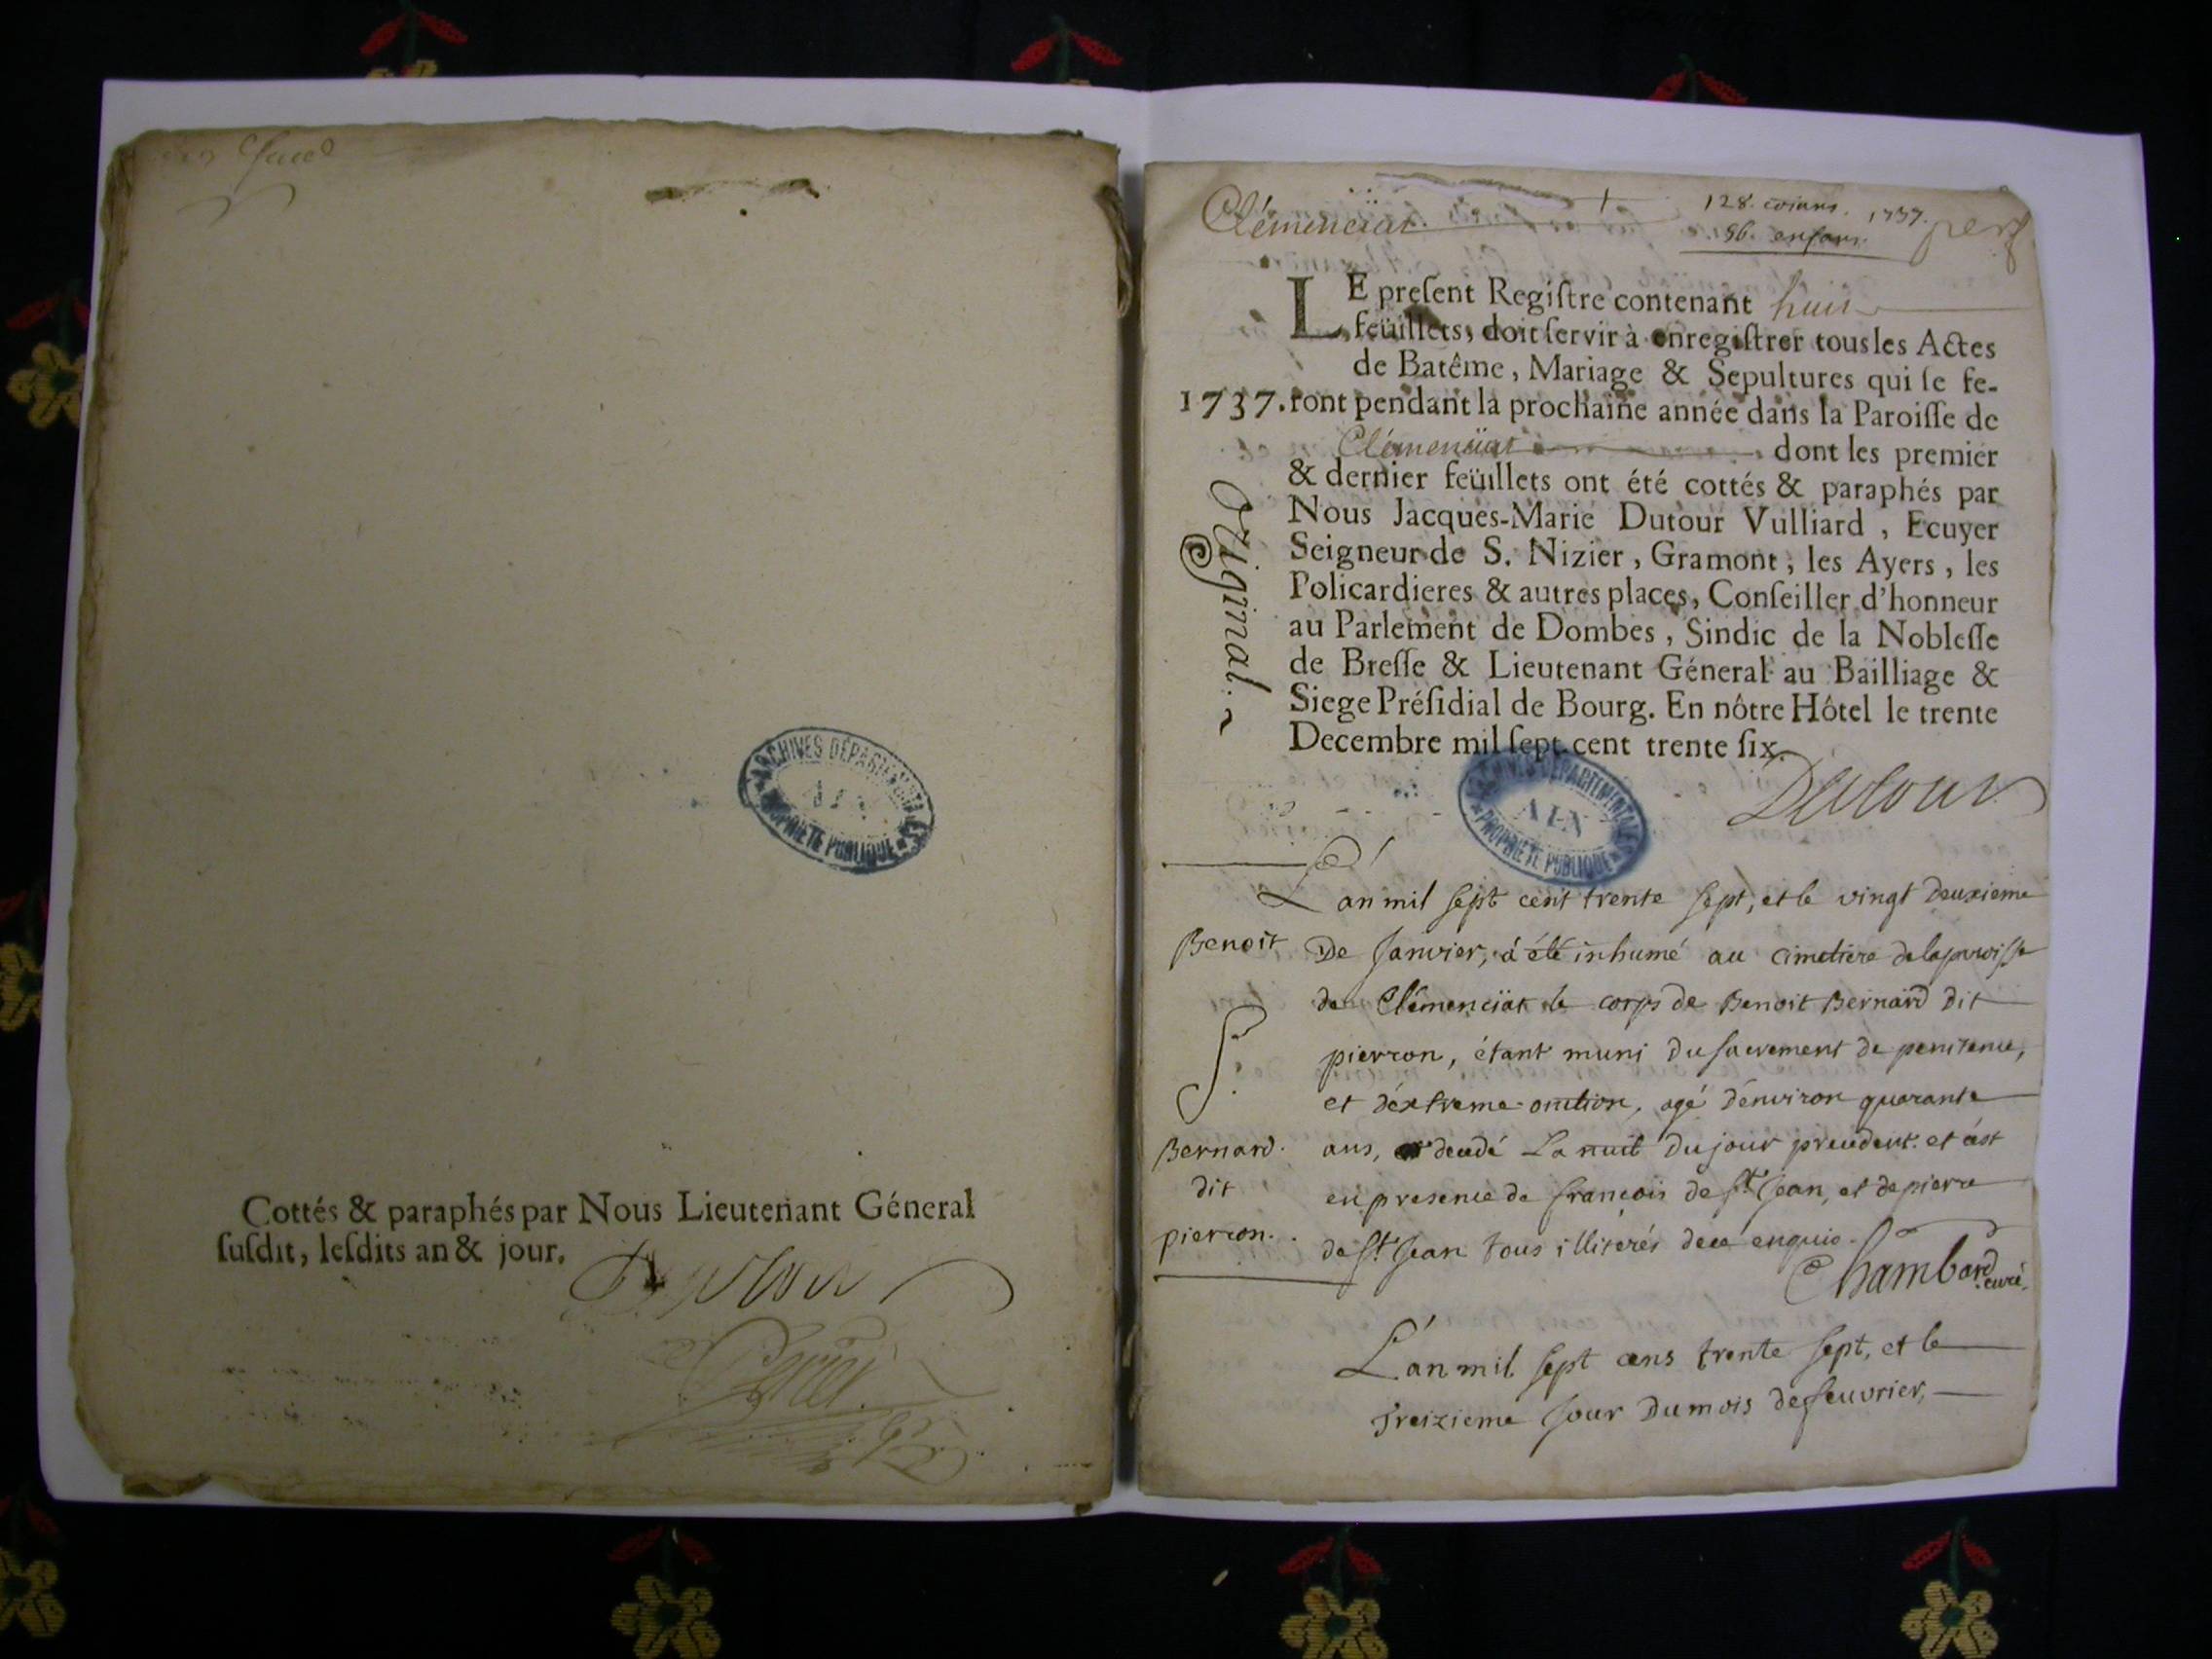 Cottés & paraphés par Nous Lieutenant Géneral
ſuſdit, leſdits an & jour.
ARCHIVES DÉPARTEMENTALES
AIN
PROPRIÉTÉ PUBLIQUE
Clémenciat.
128. coians. 1737.
96. enfans.
LE preſent Regiſtre contenant huit
feüillets, doit ſervir à enregiſtrer tous les Actes
de Batême, Mariage & Sepultures qui ſe fe-
1737. ront pendant la prochaine année dans la Paroiſſe de
Clémenciat dont les premier
& dernier feüillets ont été cottés & paraphés par
Nous Jacques-Marie Dutour Vulliard, Ecuyer
Seigneur de S. Nizier, Gramont, les Ayers, les
Policardieres & autres places, Conſeiller d'honneur
au Parlement de Dombes, Sindic de la Nobleſſe
de Breſſe & Lieutenant Géneral au Bailliage &
Siege Préſidial de Bourg. En nôtre Hôtel le trente
Decembre mil ſept cent trente ſix.
Original.
Dutour
ARCHIVES DÉPARTEMENTALES
AIN
PROPRIÉTÉ PUBLIQUE
L'an mil sept cent trente sept, et le vingt deuxieme
Benoit De Janvier, a été inhumé au cimetiere de la paroisse
de Clémenciat le corps de Benoit Bernard dit
S.
pierron, étant muni du sacrement de penitence,
et d'éxtreme-onction, agé d'environ quarante
Bernard. ans, decedé La nuit du jour precedent. et c'ést
dit en presence de françois de st Jean, et de pierre
pierron. de st Jean tous illiterés de ce enquis.
Chambard curé.
L'an mil sept cens trente sept, et le
Treizieme Jour Du mois de feuvrier,